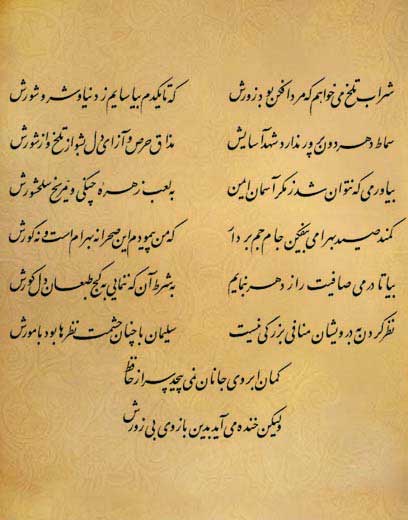 شراب تلخ می‌خواهم که مردافکن بود زورش که تا یکدم بیاسایم ز دنیا و شر و شورش
سماط دهر دون پرور ندارد شهد آسایش مذاق حرص و آز ای دل بشو از تلخ و از شورش
بیاور می که نتوان شد ز مکر آسمان ایمن به لعب زهره چنگی و مریخ سلحشورش
کمند صید بهرامی بیفکن جام جم بردار که من پیمودم این صحرا نه بهرام است و نه گورش
بیا تا در می صافیت راز دهر بنمایم به شرط آن که ننمایی به کج طبعان دل کورش
نظر کردن به درویشان منافی بزرگی نیست سلیمان با چنان حشمت نظرها بود با مورش
کمان ابروی جانان نمی‌پیچد سر از حافظ
ولیکن خنده می‌آید بدین بازوی بی زورش